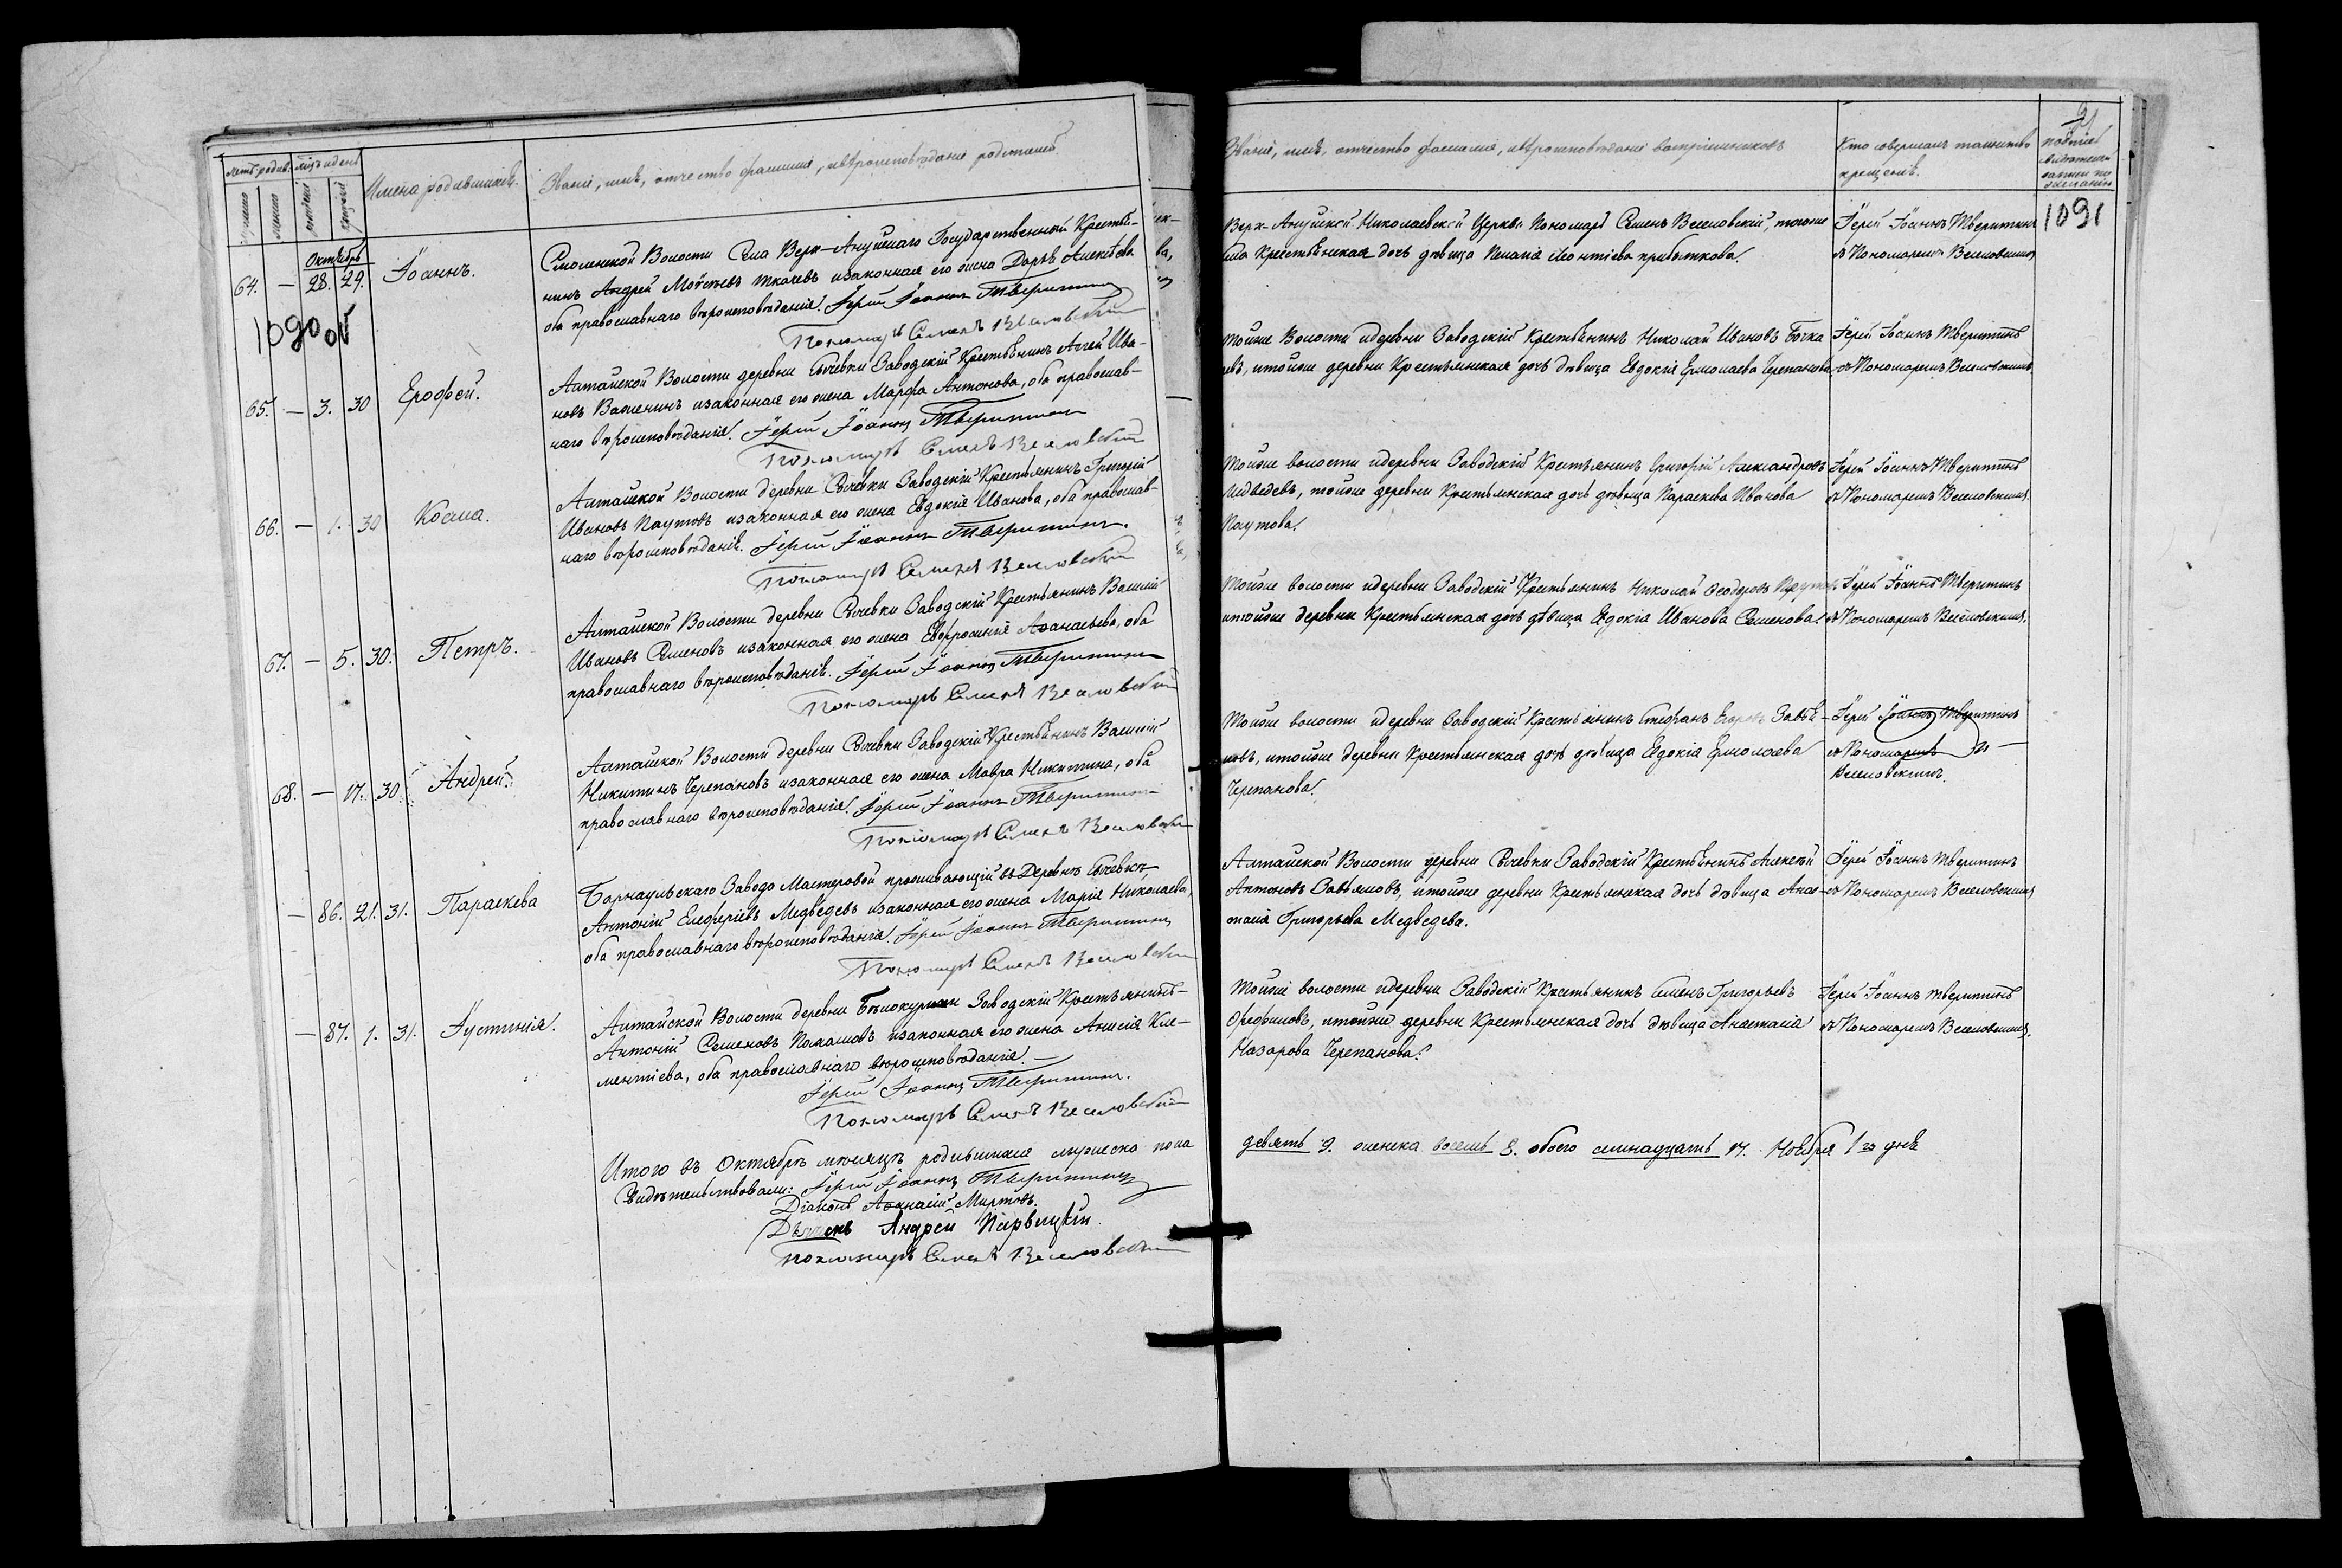 Счетъ родив.
Мѣсяцъ и день
Имена родившихся.
Званіе, имя, отчество фамилія, и вѣроисповѣданіе родителей.
Октябрь
64. — 28. 29. Іоаннъ.
Смоленской Волости Села Верх-Ануйскаго Государственный Крестья-
нинъ Андрей Моѵсеевъ Ткачевъ и законная его жена Дарья Алексѣева
оба православнаго вѣроисповѣданія. Іерей Іоаннъ Тверитинъ
Пономарь Семенъ Веселовский
1090 об
65. — 3. 30 Ерофей.
Алтайской Волости деревни Сычевки Заводскій Крестьянинъ Аггей Ива-
новъ Важенинъ и законная его жена Марфа Антонова, оба православ-
наго вѣроисповѣданія. Іерей Іоаннъ Тверитинъ
Пономарь Семенъ Веселовский
66. — 1. 30 Косма.
Алтайской Волости деревни Сычевки Заводскій Крестьянинъ Григорій
Ивановъ Паутовъ и законная его жена Евдокія Иванова, оба православ-
наго вѣроисповѣданія. Іерей Іоаннъ Тверитинъ.
Пономарь Семенъ Веселовский
67. — 5. 30. Петръ.
Алтайской Волости деревни Сычевки Заводскій Крестьянинъ Василій
Ивановъ Семеновъ и законная его жена Евфросинія Аѳанасьева, оба
православнаго вѣроисповѣданія. Іерей Іоаннъ Тверитинъ
Пономарь Семенъ Веселовский
68. — 17. 30. Андрей.
Алтайской Волости деревни Сычевки Заводскій Крестьянинъ Василій
Никитинъ Черепановъ и законная его жена Мавра Никитина, оба
православнаго вѣроисповѣданія. Іерей Іоаннъ Тверитинъ
Пономарь Семенъ Веселовский
— 86. 21. 31. Параскева
Барнаульскаго Завода Мастеровой проживающій въ Деревнѣ Сычевкѣ,
Антоній Елеферіевъ Медведевъ и законная его жена Марія Николаева,
оба православнаго вѣроисповѣданія. Іерей Іоаннъ Тверитинъ
Пономарь Семенъ Веселовский
— 87. 1. 31. Іустинія.
Алтайской Волости деревни Бѣлокурихи Заводскій Крестьянинъ
Антоній Семеновъ и законная его жена Анисія Кле-
ментіева, оба православнаго вѣроисповѣданія. —
Іерей Іоаннъ Тверитинъ.
Пономарь Семенъ Веселовский
Итого въ Октябрѣ мѣсяцѣ родившихся мужеска пола
Свидѣтельствовали: Іерей Іоаннъ Тверитинъ
Діаконъ Аѳанасій Миртовъ.
Андрей
Пономарь Семенъ Веселовский
Званіе, имя, отчество фамилія, и вѣроисповѣданіе воспріемниковъ
Кто совершалъ таинство
крещенія.
1091
Верх-Ануйской Николаевской Церкви Пономарь Семенъ Веселовскій, тогоже
села Крестьянская дочь дѣвица Пелагія Леонтіева Прибыткова.
Іерей Іоаннъ Тверитинъ
съ Пономаремъ Веселовскимъ
Тойже Волости и деревни Заводскій Крестьянинъ Николай Ивановъ Бочка
евъ, и тойже деревни Крестьянская дочь дѣвица Евдокія Ермолаева Черепанова.
Іерей Іоаннъ Тверитинъ
съ Пономаремъ Веселовскимъ.
Тойже волости и деревни Заводскій Крестьянинъ Григорій Александровъ
Медведевъ, тойже деревни Крестьянская дочь дѣвица Параскева Иванова
Паутова.
Іерей Іоаннъ Тверитинъ
съ Пономаремъ Веселовскимъ.
Тойже волости и деревни Заводскій Крестьянинъ Николай Ѳеодоровъ
и тойже деревни Крестьянская дочь дѣвица Евдокія Иванова Семенова.
Іерей Іоаннъ Тверитинъ
съ Пономаремъ Веселовскимъ.
Тойже волости и деревни Заводскій Крестьянинъ Стефанъ Егоровъ Завья-
ловъ, и тойже деревни Крестьянская дочь дѣвица Евдокія Ермолаева
Черепанова.
Іерей Іоаннъ Тверитинъ
съ Пономаремъ
Веселовскимъ.
Алтайской Волости деревни Сычевки Заводскій Крестьянинъ Алексѣй
Антоновъ Завьяловъ, и тойже деревни Крестьянская дочь дѣвица Анас-
тасія Григорьева Медведева.
Іерей Іоаннъ Тверитинъ
съ Пономаремъ Веселовскимъ
Тойже волости и деревни Заводскій Крестьянинъ Семенъ Григорьевъ
и тойже деревни Крестьянская дочь дѣвица Анастасія
Назарова Черепанова.
Іерей Іоаннъ Тверитинъ
съ Пономаремъ Веселовскимъ.
девять 9. женска восемь 8. обоего семнадцать 17. Ноября 1го дня